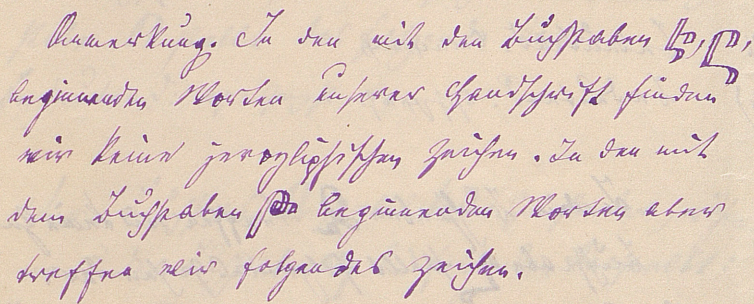 Anmerkung. In den mit den Buchstaben
beginnenden Worten unserer Handschrift finden
wir keine jerogliphischen Zeichen. In den mit
dem Buchstaben beginnenden Worten aber
treffen wir folgendes Zeichen.